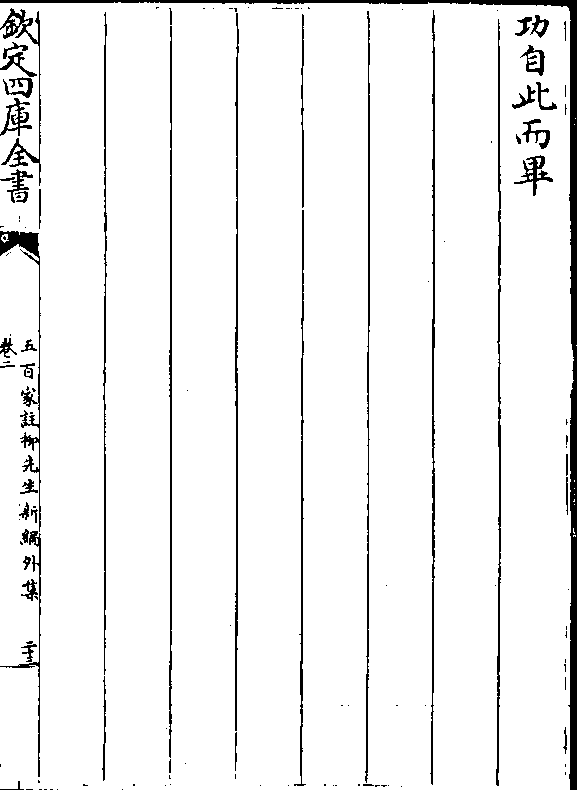 功自此而畢
欽定四庫全書
五百家註柳先生新編外集
卷二
二十三